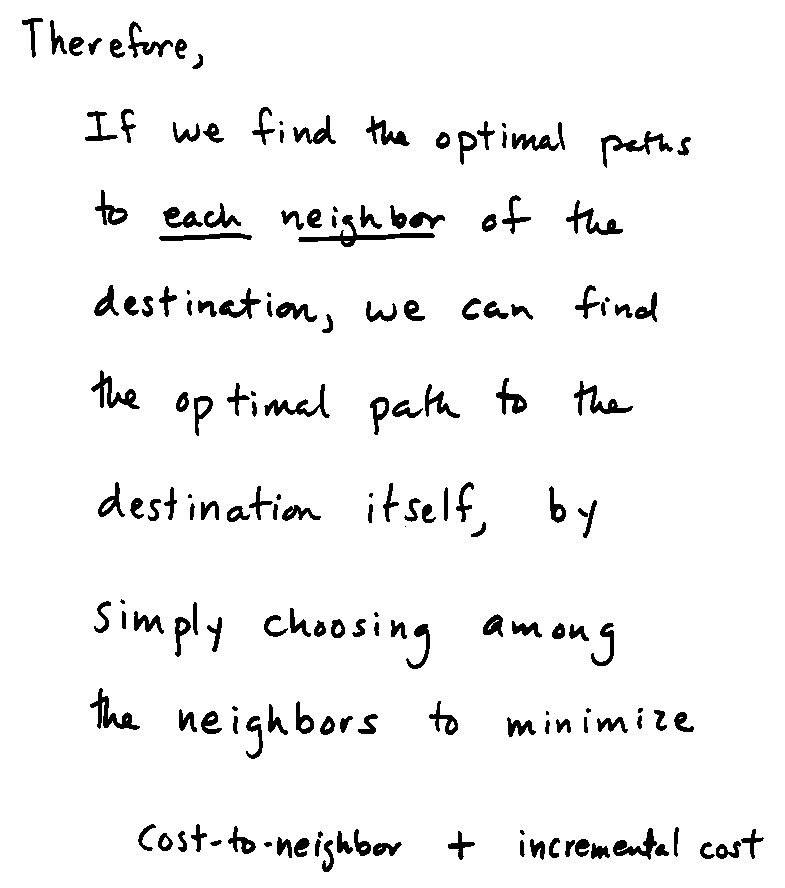 Therefore,
If we find the optimal paths
to each neighbor of the
destination, we can find
the optimal path to the
destination itself, by
simply choosing among
the neighbors to minimize
cost-to-neighbor + incremental cost